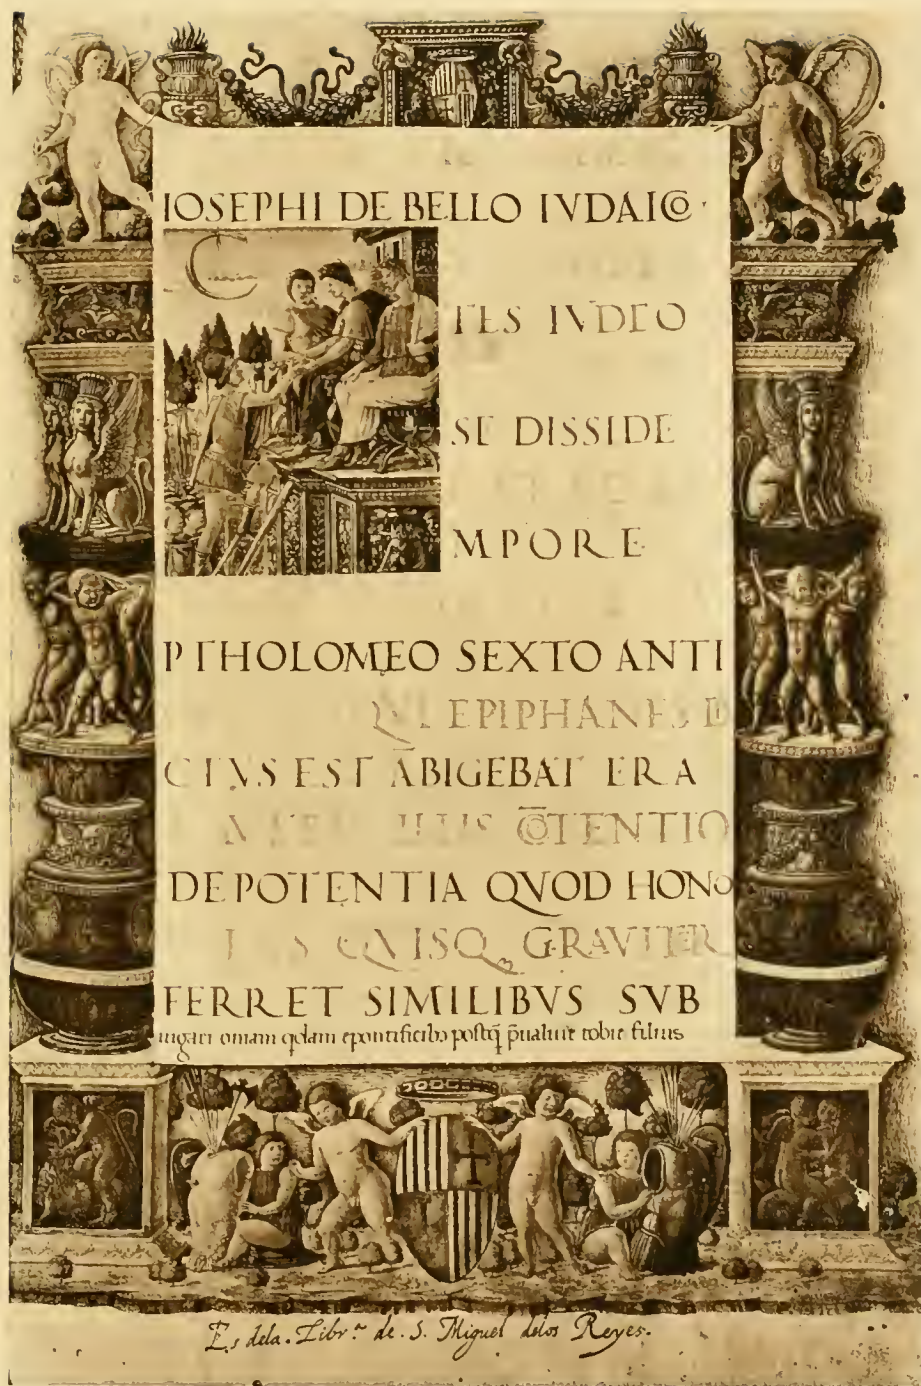 IOSEPHI DE BELLO IVDAICO
TES IVDEO
SE DISSIDE
MPORE
PTHOLOMEO SEXTO ANTI
QVI EPIPHANES D
CTVS EST ĀBIGEBAT ERA
C̄OTENTIO
DE POTENTIA QVOD HONO
QVISQ, GRAVITER
FERRET SIMILIBVS SVB
iugari omam qdam epontificibɔ postq̃ p̃ualuit tobie filius
Es dela. Libr.ª de. S. Miguel delos Reyes.